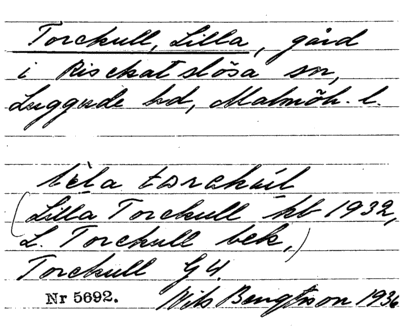 Torckull, Lilla, gård
i Risekatslösa sn,
Luggude hd, Malmöh. l.
lela torckul
(Lilla Torckull kb 1932,
L. Torckull bek.)
Torckull G4.
Nr 5692. Nils Bengtsson 1936